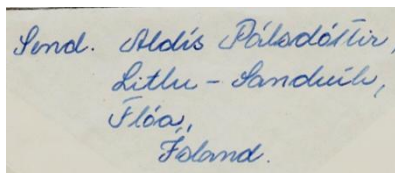 Send. Aldís Pálsdóttir,
Litlu-Sandvík,
Flóa,
Ísland.